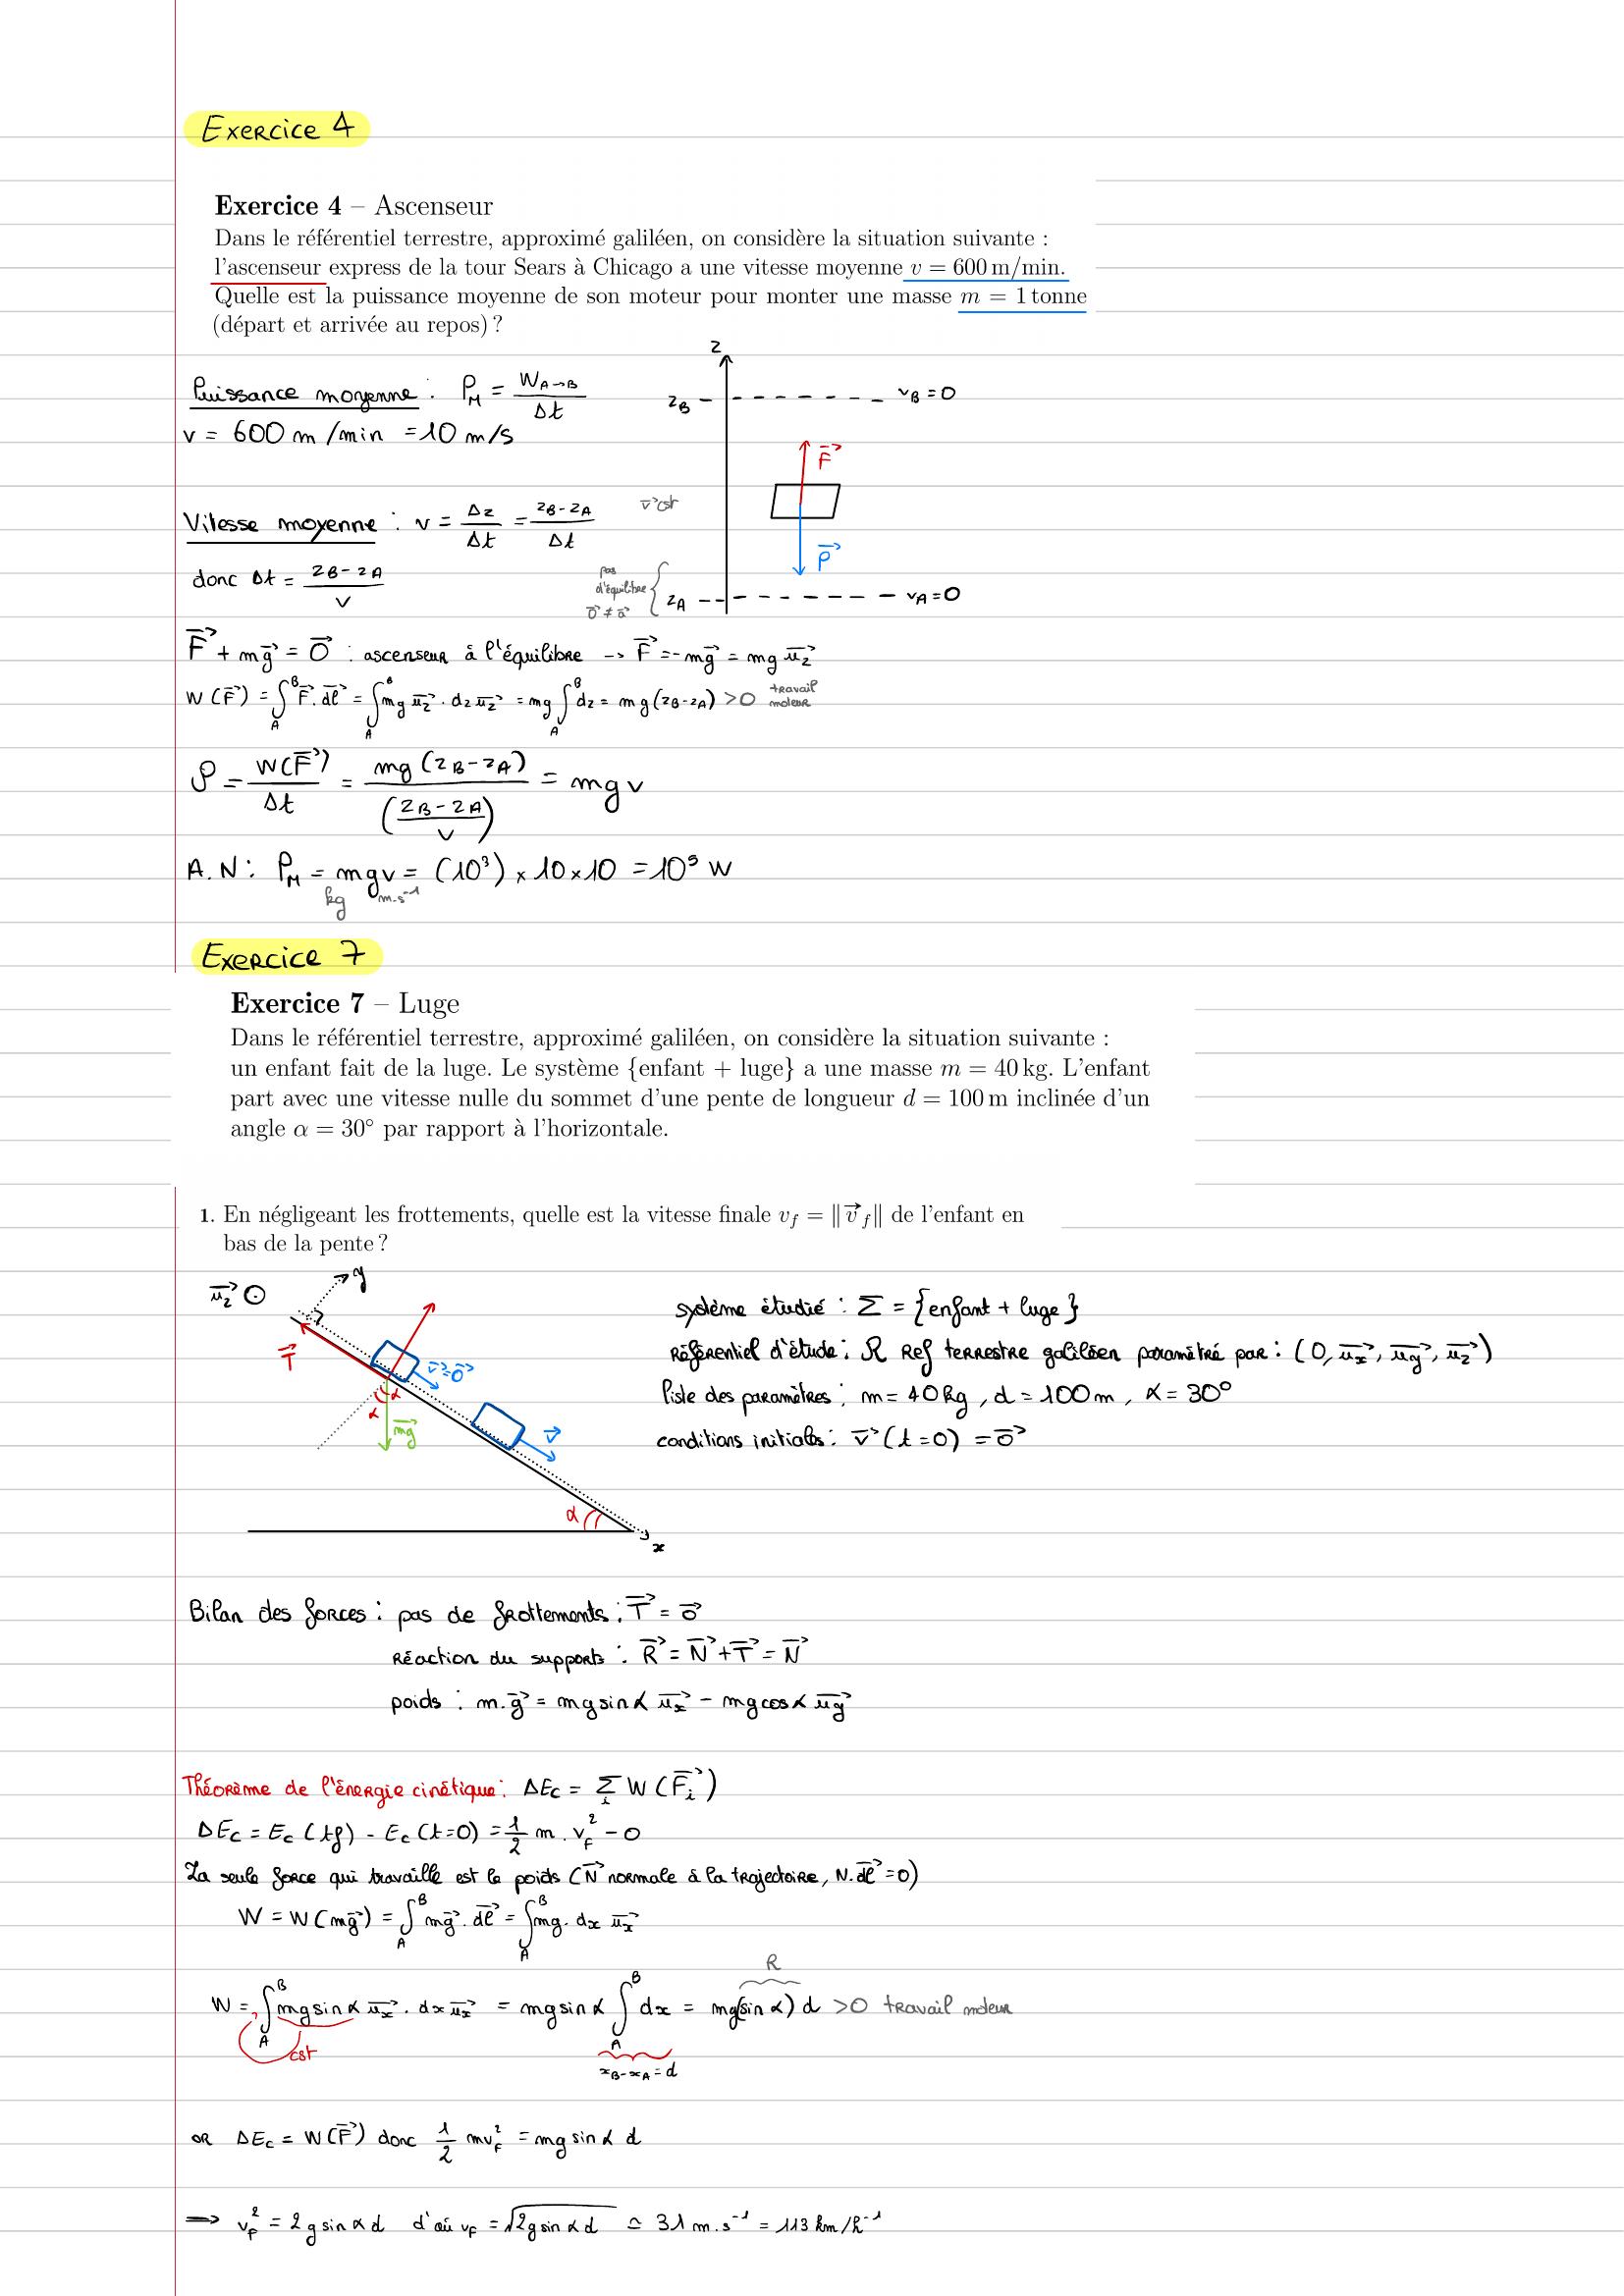 Exercice 4
Exercice 4 – Ascenseur
Dans le référentiel terrestre, approximé galiléen, on considère la situation suivante :
l'ascenseur express de la tour Sears à Chicago a une vitesse moyenne v = 600 m/min.
Quelle est la puissance moyenne de son moteur pour monter une masse m = 1 tonne
(départ et arrivée au repos) ?
Puissance moyenne : P_M = W_{A→B} / Δt
v = 600 m/min = 10 m/s
Vitesse moyenne : v = Δz/Δt = (z_B - z_A)/Δt
donc Δt = (z_B - z_A)/v
z
z_B
v_B = 0
F⃗
v⃗ cst
P⃗
pas d'équilibre 0⃗ ≠ a⃗
z_A
v_A = 0
F⃗ + mg⃗ = 0⃗ : ascenseur à l'équilibre → F⃗ = -mg⃗ = mg u_z⃗
W(F⃗) = ∫_A^B F⃗. dl⃗ = ∫_A^B mg u_z⃗ . dz u_z⃗ = mg ∫_A^B dz = mg(z_B - z_A) > 0 travail moteur
P = W(F⃗)/Δt = mg(z_B - z_A) / ((z_B - z_A)/v) = mgv
A.N : P_M = mgv = (10³) × 10 × 10 = 10⁵ W
kg m.s⁻¹
Exercice 7
Exercice 7 – Luge
Dans le référentiel terrestre, approximé galiléen, on considère la situation suivante :
un enfant fait de la luge. Le système {enfant + luge} a une masse m = 40 kg. L'enfant
part avec une vitesse nulle du sommet d'une pente de longueur d = 100 m inclinée d'un
angle α = 30° par rapport à l'horizontale.
1. En négligeant les frottements, quelle est la vitesse finale v_f = ‖v⃗_f‖ de l'enfant en
bas de la pente ?
u_z⃗ ⊙
y
T⃗
v⃗=0⃗
α
α
mg⃗
v⃗
α
x
système étudié : Σ = {enfant + luge}
Référentiel d'étude : R Ref terrestre galiléen paramétré par : (0, u_x⃗, u_y⃗, u_z⃗)
liste des paramètres : m = 40 kg, d = 100 m, α = 30°
conditions initiales : v⃗(t=0) = 0⃗
Bilan des forces : pas de frottements : T⃗ = 0⃗
Réaction du supports : R⃗ = N⃗ + T⃗ = N⃗
poids : m.g⃗ = mg sin α u_x⃗ - mg cos α u_y⃗
Théorème de l'énergie cinétique : ΔEc = Σ_i W(F_i⃗)
ΔEc = Ec(tf) - Ec(t=0) = 1/2 m . v_f² - 0
La seule force qui travaille est le poids (N⃗ normale à la trajectoire, N.dl⃗ = 0)
W = W(mg⃗) = ∫_A^B mg⃗. dl⃗ = ∫_A^B mg. dx u_x⃗
W = ∫_A^B mg sin α u_x⃗ . dx u_x⃗ = mg sin α ∫_A^B dx = mg(sin α) d > 0 travail moteur
R
cst
x_B - x_A = d
or ΔEc = W(F⃗) donc 1/2 mv_f² = mg sin α d
⟹ v_f² = 2g sin α d d'où v_f = √(2g sin α d) ≃ 31 m.s⁻¹ = 113 km/h⁻¹